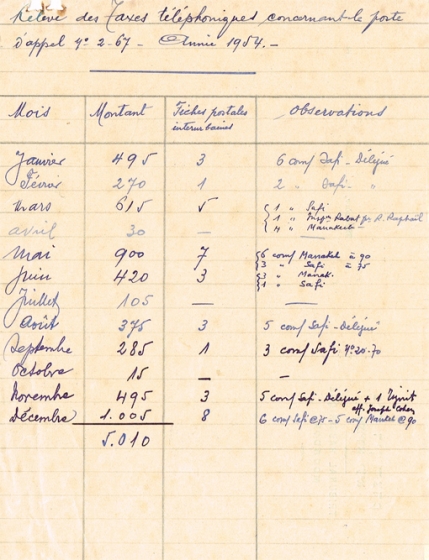 Relevé des Taxes téléphoniques concernant le poste
D'appel Nº 2-67 - Année 1954.-
Mois Montant Fiches postales interurbaines Observations
Janvier 495 3 6 conf Safi - Délégué
Février 270 1 2 " Safi - "
Mars 615 5 1 " Safi
1 " Rabat pr R. Raphaël
4 " Marrakech -
avril 30 —
Mai 900 7 6 conf Marrakch à 90
3 " Safi à 75
Juin 420 3 2 " Marrak.
1 " Safi
Juillet 105 — —
Août 375 3 5 conf Safi - Délégué
Septembre 285 1 3 conf Safi Nº 20-70
Octobre 15 — —
Novembre 495 3 5 conf Safi - Délégué + 1
aff. Joseph Cohen
Décembre 1.005 8 6 conf Safi @ 75 - 5 conf @ 90
5.010